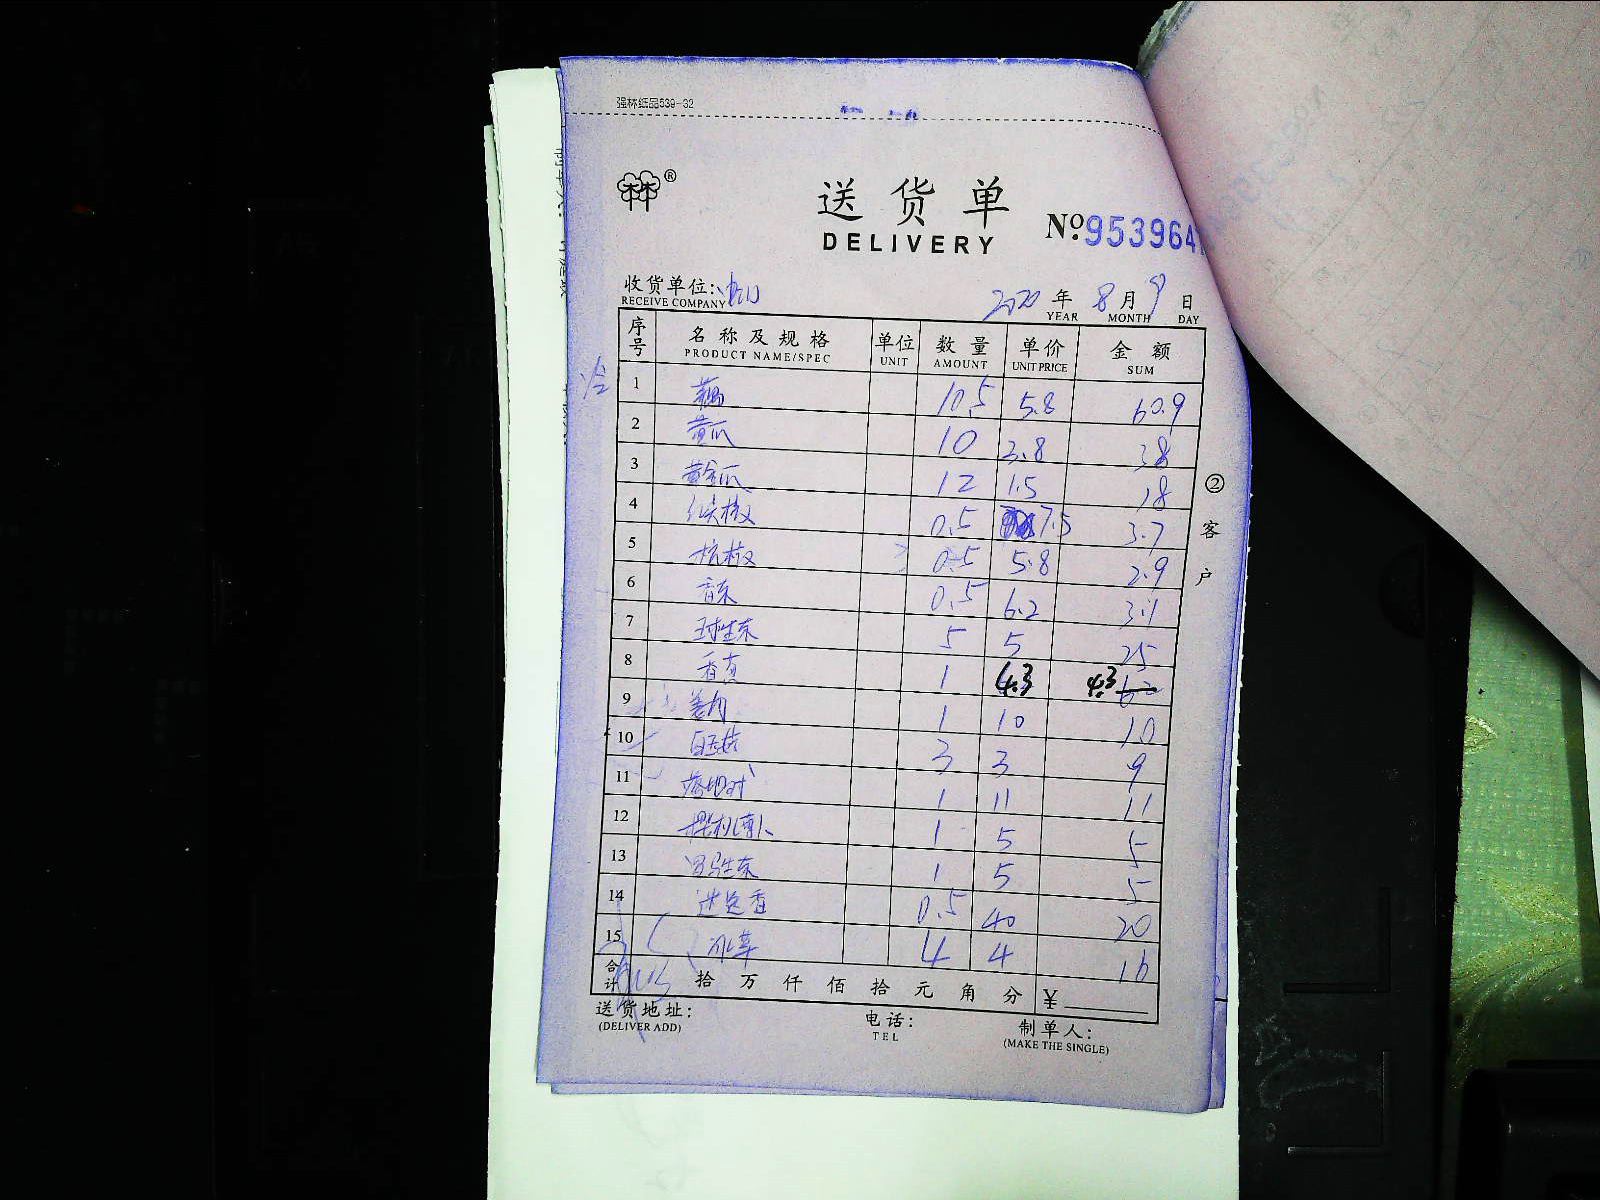 强林纸品539-32
送货单
DELIVERY
No.953964
收货单位: 2020 年 8 月 9 日
RECEIVE COMPANY YEAR MONTH DAY
序号 名称及规格 单位 数量 单价 金额
PRODUCT NAME/SPEC UNIT AMOUNT UNIT PRICE SUM
冷 1 藕 10.5 5.8 60.9
2 黄瓜 10 3.8 38
3 黄金瓜 12 1.5 18
4 红尖椒 0.5 7.5 3.7
5 杭椒 0.5 5.8 2.9
6 香菜 0.5 6.2 3.1
7 球生菜 5 5 25
8 香 1 4.3 4.3
9 姜 1 10 10
10 白玉菇 3 3 9
11 1 11 11
12 1 5 5
13 罗马生菜 1 5 5
14 迷迭香 0.5 40 20
15 冰草 4 4 16
合计 拾 万 仟 佰 拾 元 角 分 ¥
②客户
送货地址: 电话: 制单人:
(DELIVER ADD) TEL (MAKE THE SINGLE)